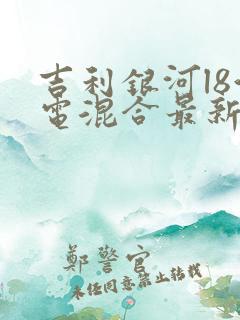 吉利銀河18
電混合最新
鄭警官
未經同意禁止轉載